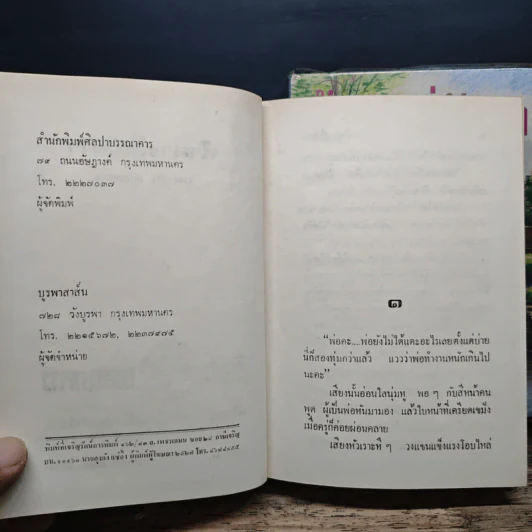 สำนักพิมพ์ศิลปาบรรณาคาร
๗๙ ถนนอัษฎางค์ กรุงเทพมหานคร
โทร. ๒๒๒๗๐๓๗
ผู้จัดพิมพ์
บูรพาสาส์น
๗๒๘ วังบูรพา กรุงเทพมหานคร
โทร. ๒๒๑๕๖๗๒, ๒๒๓๗๙๗๕
ผู้จัดจำหน่าย
๑
"พ่อคะ...พ่อยังไม่ได้แตะอะไรเลยตั้งแต่บ่าย
นี่ก็สองทุ่มกว่าแล้ว แววว่าพ่อทำงานหนักเกินไป
นะคะ"
เสียงนั้นอ่อนใสนุ่มหู พอ ๆ กับสีหน้าคน
พูด ผู้เป็นพ่อหันมามอง แล้วใบหน้าที่เครียดเขม็ง
เมื่อครู่ก็ค่อยผ่อนคลาย
เสียงหัวเราะหึ ๆ วงแขนแข็งแรงโอบไหล่